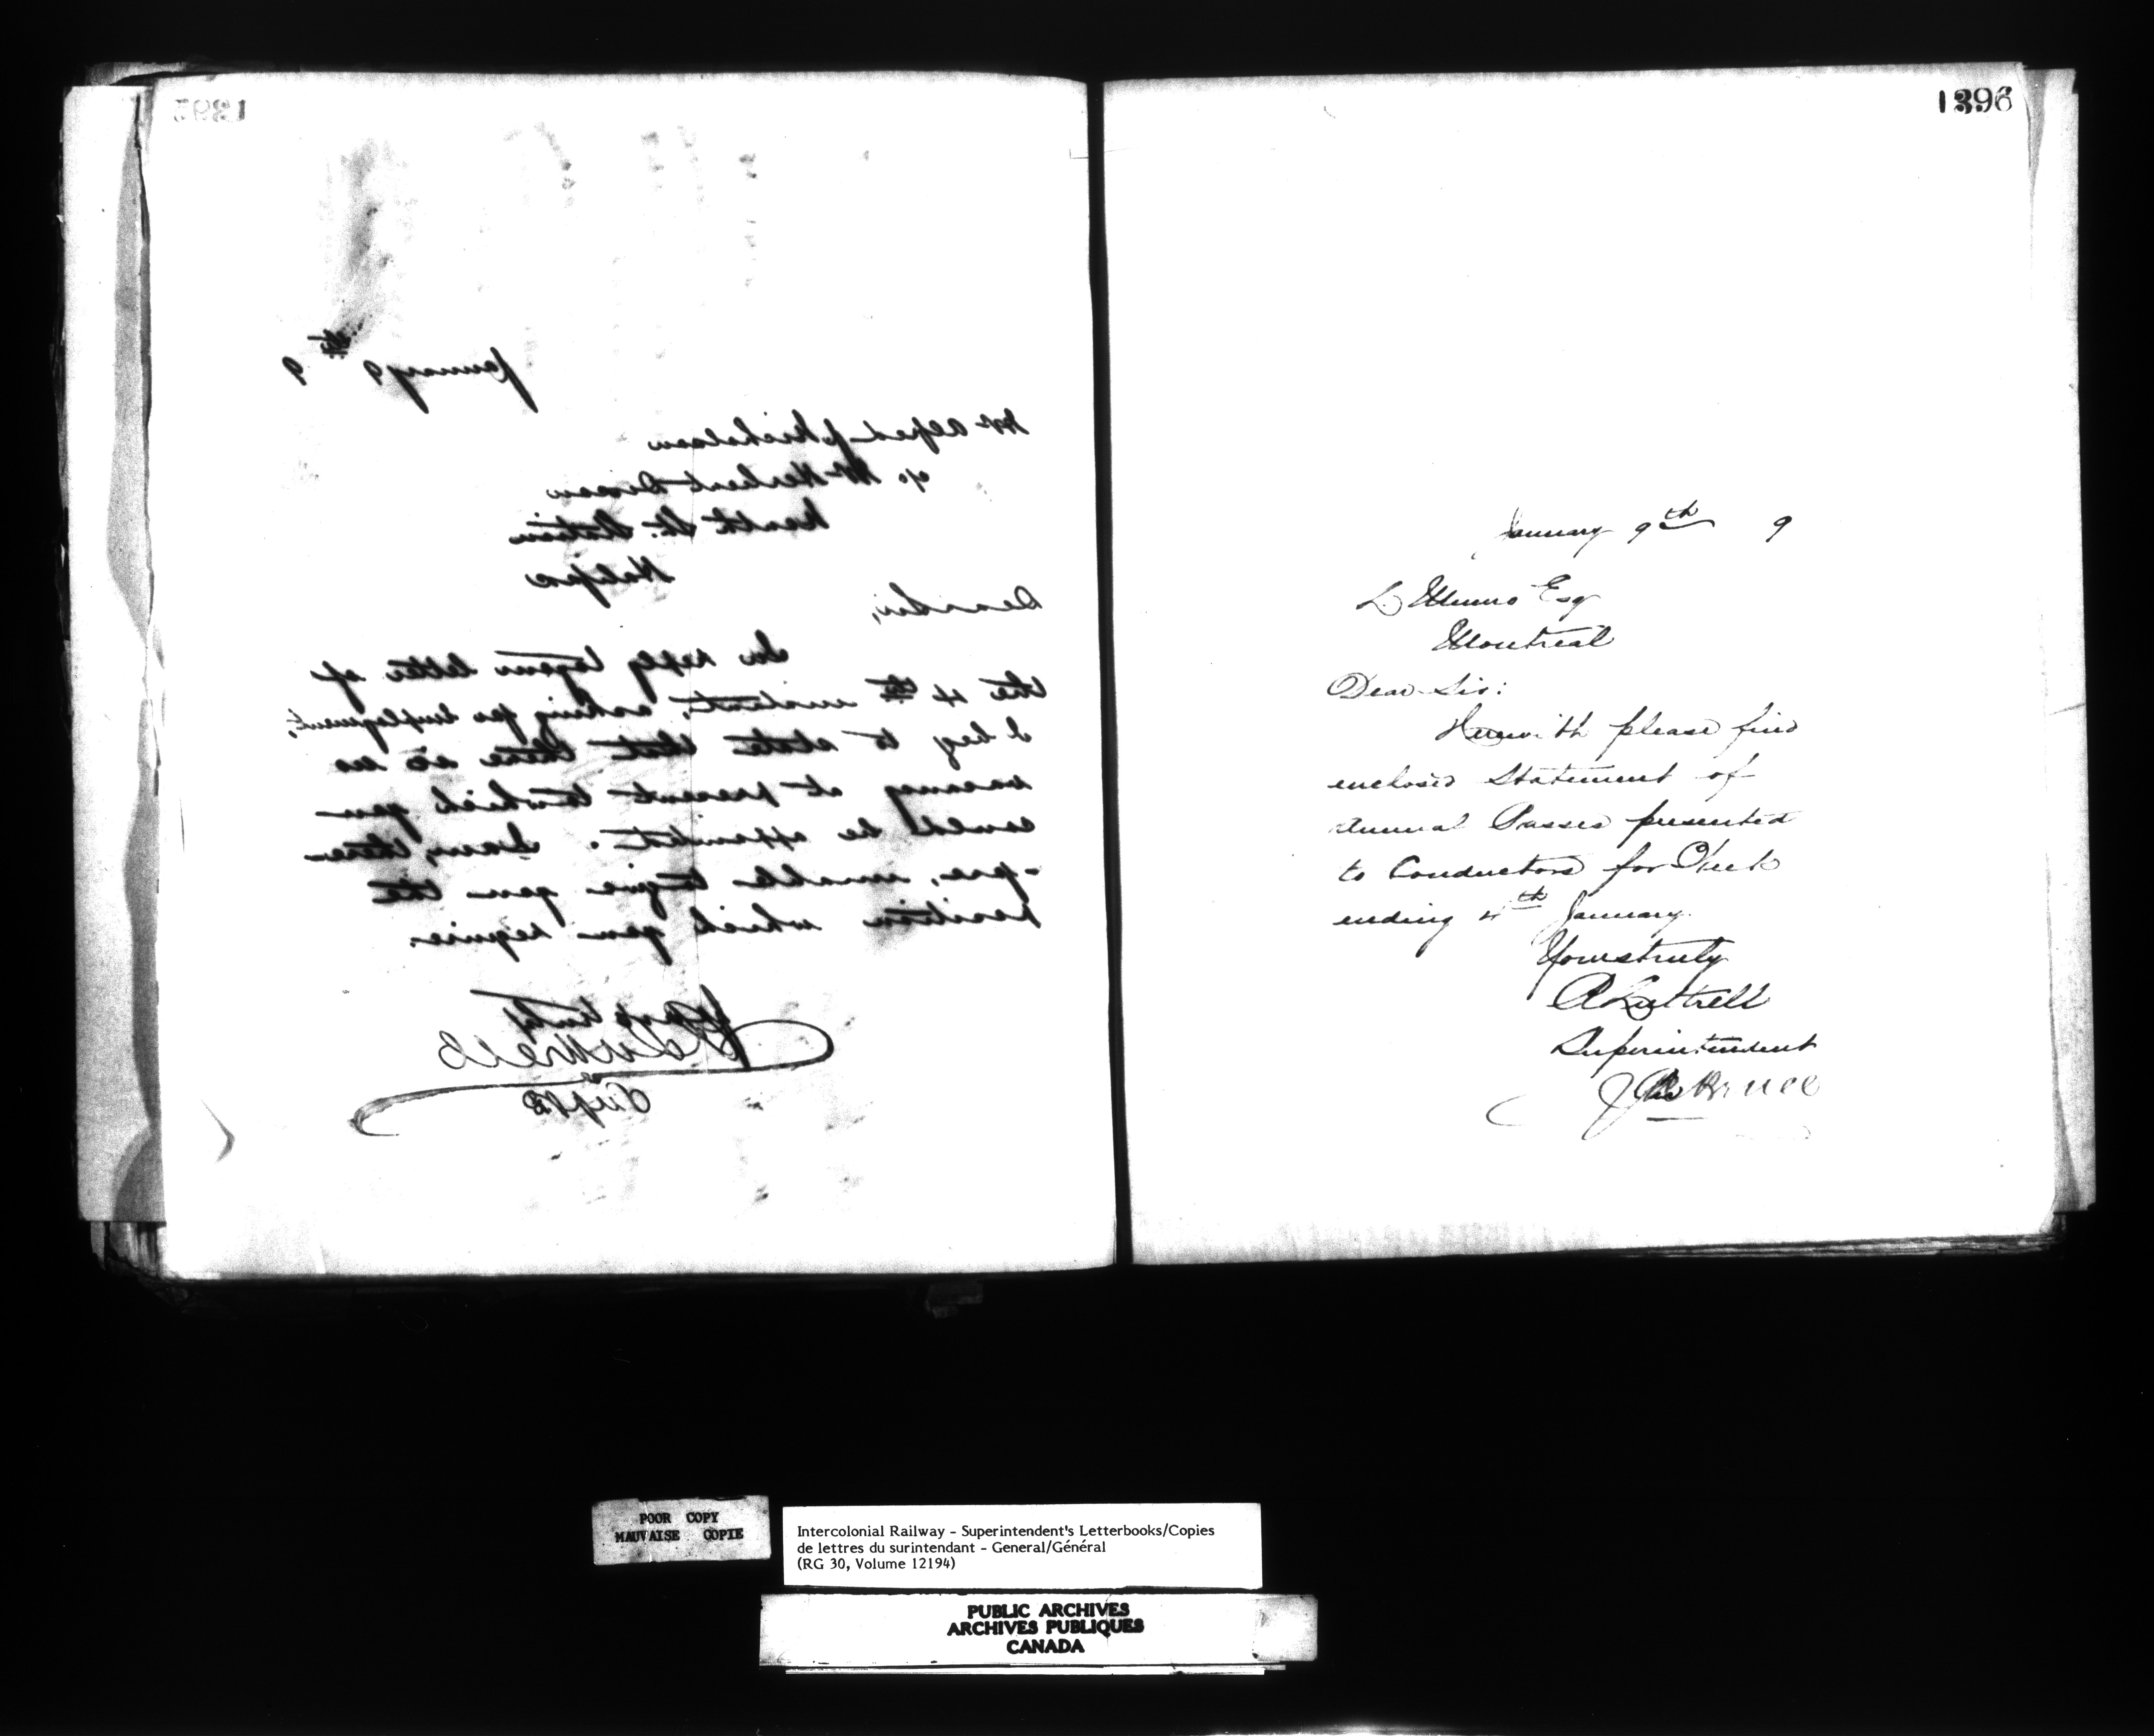 1395
January 9th 9
Mr Alfred J Nicholson
c/o Mr Herbert Dixon
North St. Station
Halifax
Dear Sir,
In reply to your letter of
the 4th instant, asking for employment,
I beg to state that there is no
vacancy at present to which you
could be appointed. I am, there-
-fore, unable to give you the
position which you require.
Yours truly
A Luttrell
Supt
1396
January 9th 9
D Munro Esq
Montreal
Dear Sir:
Herewith please find
enclosed Statement of
Annual Passes presented
to Conductors for Week
ending 4th January.
Yours truly
A Luttrell
Superintendent
Bruce
POOR COPY
MAUVAISE COPIE
Intercolonial Railway - Superintendent's Letterbooks/Copies
de lettres du surintendant - General/Général
(RG 30, Volume 12194)
PUBLIC ARCHIVES
ARCHIVES PUBLIQUES
CANADA